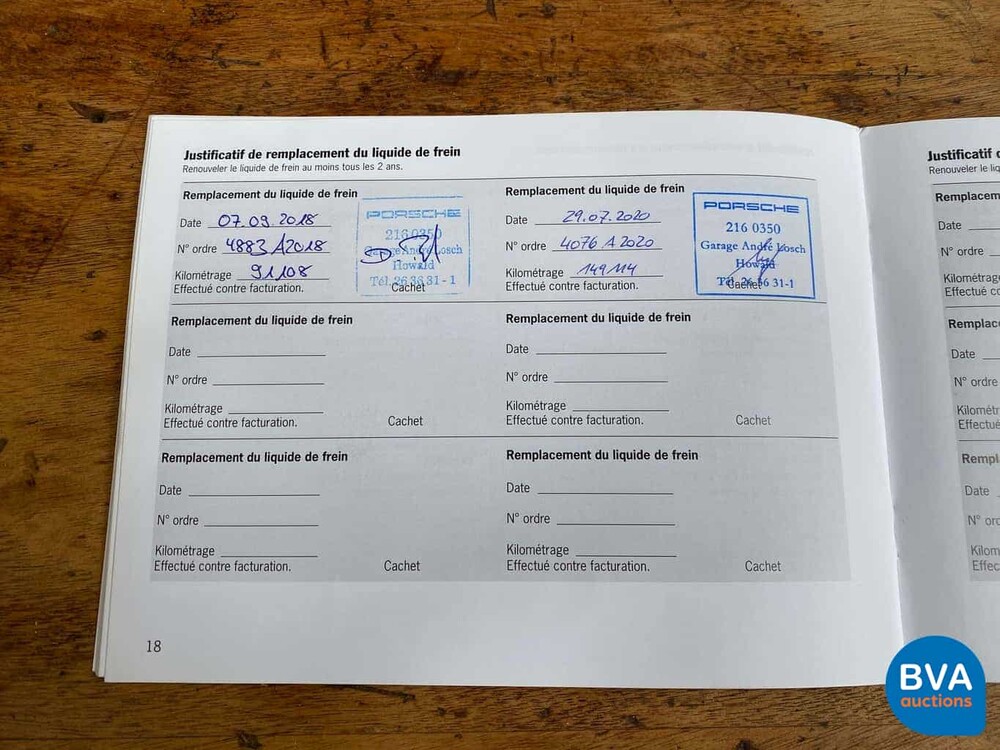 Justificatif de remplacement du liquide de frein
Renouveler le liquide de frein au moins tous les 2 ans.
Remplacement du liquide de frein
Date 07.09.2018
N° ordre 4883 A2018
Kilométrage 91108
Effectué contre facturation.
PORSCHE
216 0350
Garage André Losch
Howald
Tél. 26 36 31-1
Cachet
Remplacement du liquide de frein
Date 29.07.2020
N° ordre 4076 A 2020
Kilométrage 149114
Effectué contre facturation.
PORSCHE
216 0350
Garage André Losch
Howald
Tél. 26 36 31-1
Cachet
Remplacement du liquide de frein
Date
N° ordre
Kilométrage
Effectué contre facturation.
Cachet
Remplacement du liquide de frein
Date
N° ordre
Kilométrage
Effectué contre facturation.
Cachet
Remplacement du liquide de frein
Date
N° ordre
Kilométrage
Effectué contre facturation.
Cachet
Remplacement du liquide de frein
Date
N° ordre
Kilométrage
Effectué contre facturation.
Cachet
18
Justificatif
Renouveler le
Date
N° ordre
Kilométrage
Effectué
Date
N° ordre
Date
BVA
auctions